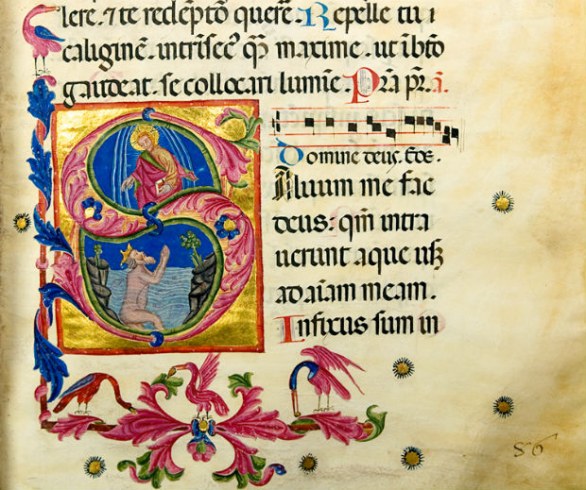 lere. ⁊ te redēpto querē. Repelle tu i
caliginē. intrīsec᷒ qm̄ maxime. ut
se collocari lumīe. Pr̄a pr̄. a.
Domine deus.
Aluum me fac
deus: qm̄ intra
uerunt aque usꝫ
ad aīam meam.
Infixus sum in